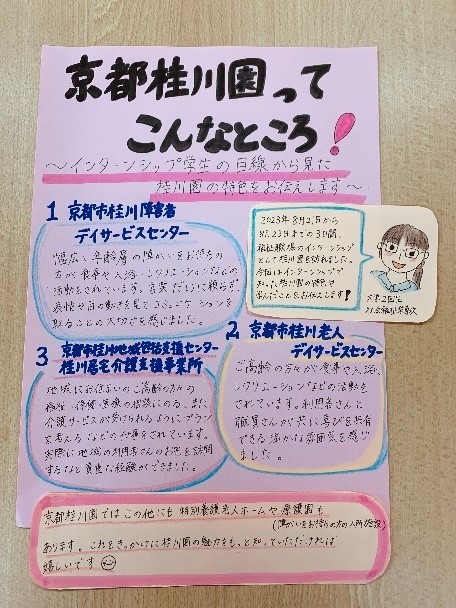 京都桂川園って
こんなところ!
～インターンシップ学生の目線から見た
桂川園の特色をお伝えします～
2023年8月21日から
8月23日までの3日間、
福祉職場のインターンシップ
として桂川園を訪れました。
今回はインターンシップで
知った桂川園の特色や
学んだことをお伝えします!
大学2回生
社会福祉学専攻
1 京都市桂川障害者
デイサービスセンター
幅広い年齢層の障がいをお持ちの
方が食事や入浴、レクリエーションなどの
活動をされています。言葉だけに頼らず
表情や目の動きを見てコミュニケーションを
取ることの大切さを感じました。
2 京都市桂川老人
デイサービスセンター
ご高齢の方々が食事や入浴、
レクリエーションなどの活動を
されています。利用者さんと
職員さんが共に喜びを共有
できる温かな雰囲気を感じ
ました。
3 京都市桂川地域包括支援センター
桂川居宅介護支援事業所
地域にお住まいのご高齢の方々の
福祉・保健・医療の相談にのる、また
介護サービスが受けられるようにプラン
を考えるなどの仕事をされています。
実際に地域の利用者さんのお宅を訪問
するなど貴重な経験ができました。
京都桂川園ではこの他にも特別養護老人ホームや療護園も
(障がいをお持ちの方の入所施設)
あります。これをきっかけに桂川園の魅力をもっと知っていただければ
嬉しいです